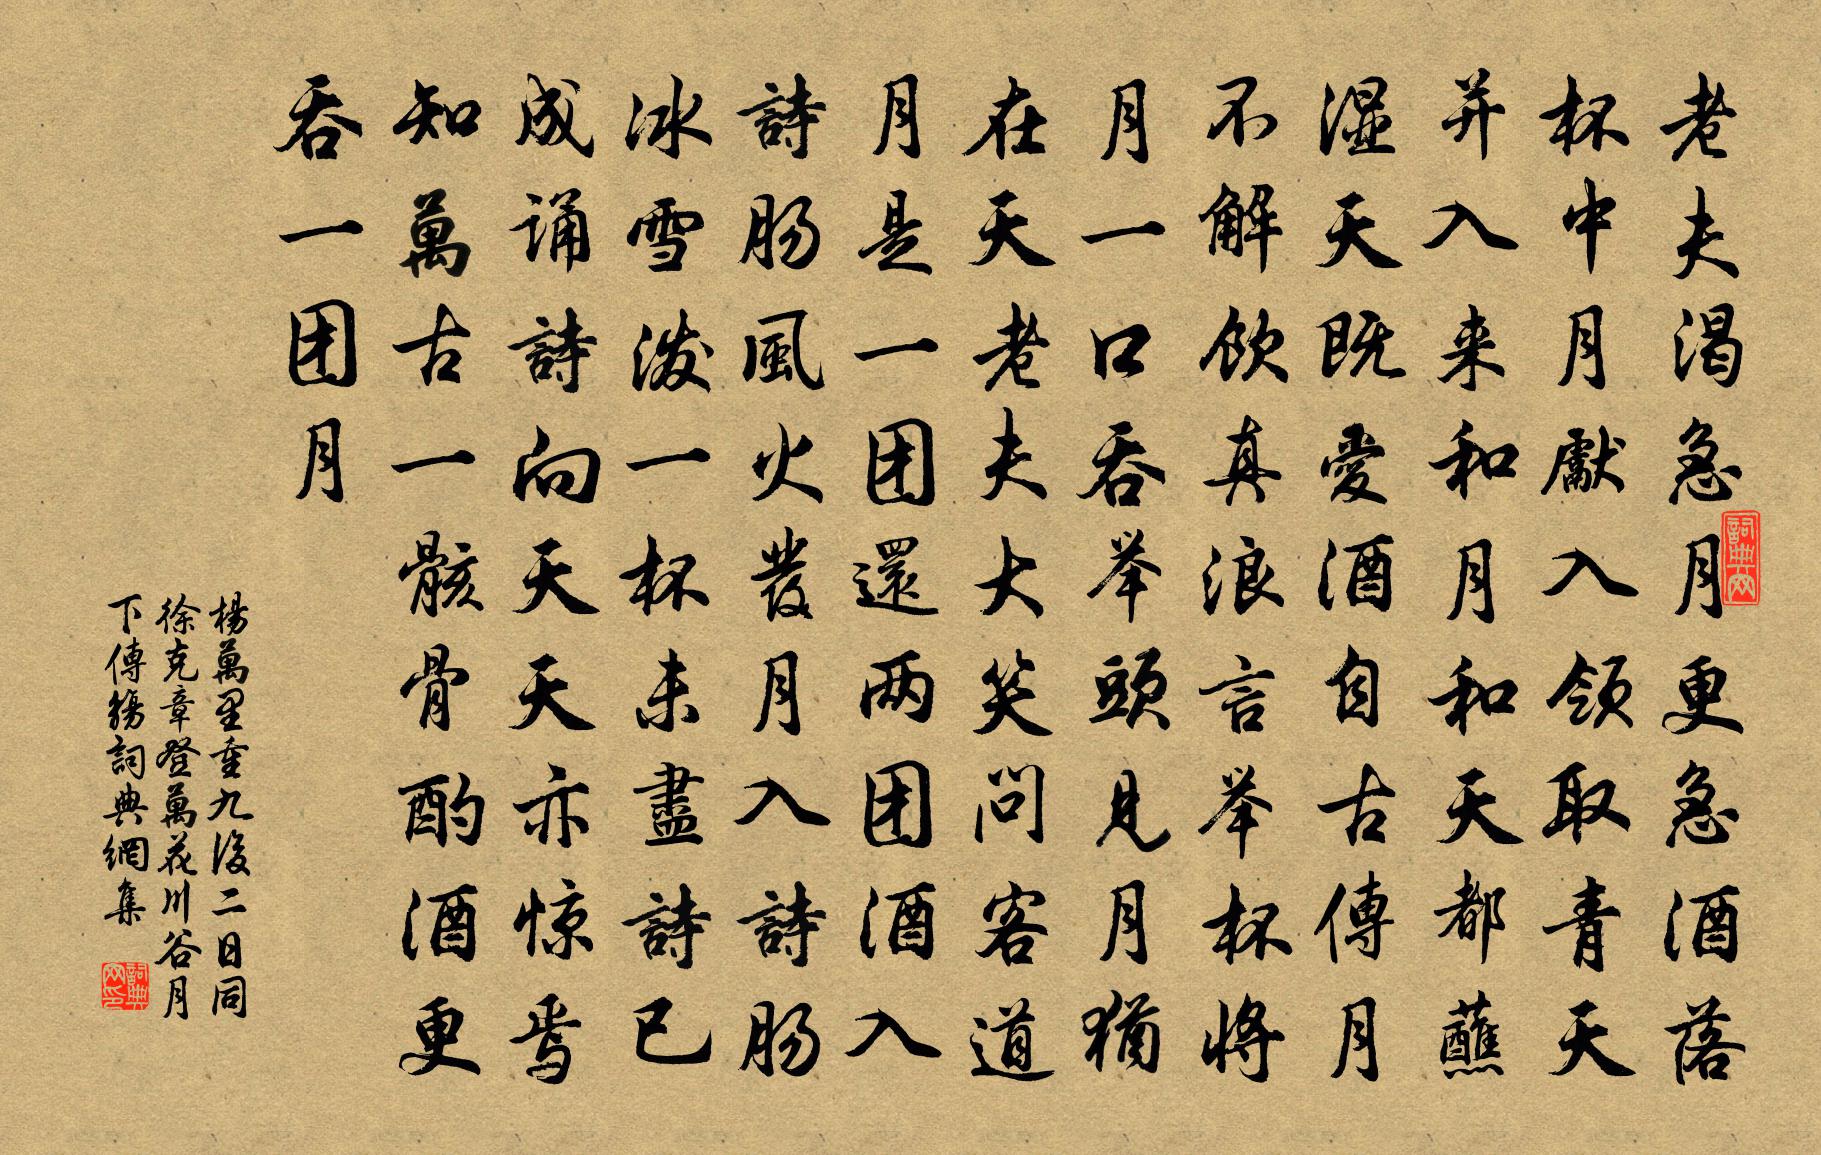 老夫渴急月更急酒落
杯中月獻入领取青天
并入来和月和天都蘸
湿天既爱酒自古傳月
不解飲真浪言举杯將
月一口吞举頭見月猶
在天老夫大笑問客道
月是一团還两团酒入
詩肠風火發月入詩肠
冰雪泼一杯未盡詩已
成诵詩向天天亦惊焉
知萬古一骸骨酌酒更
吞一团月
楊萬里重九後二日同
徐克章登萬花川谷月
下傳觴詞典網集
詞典网
詞典网印